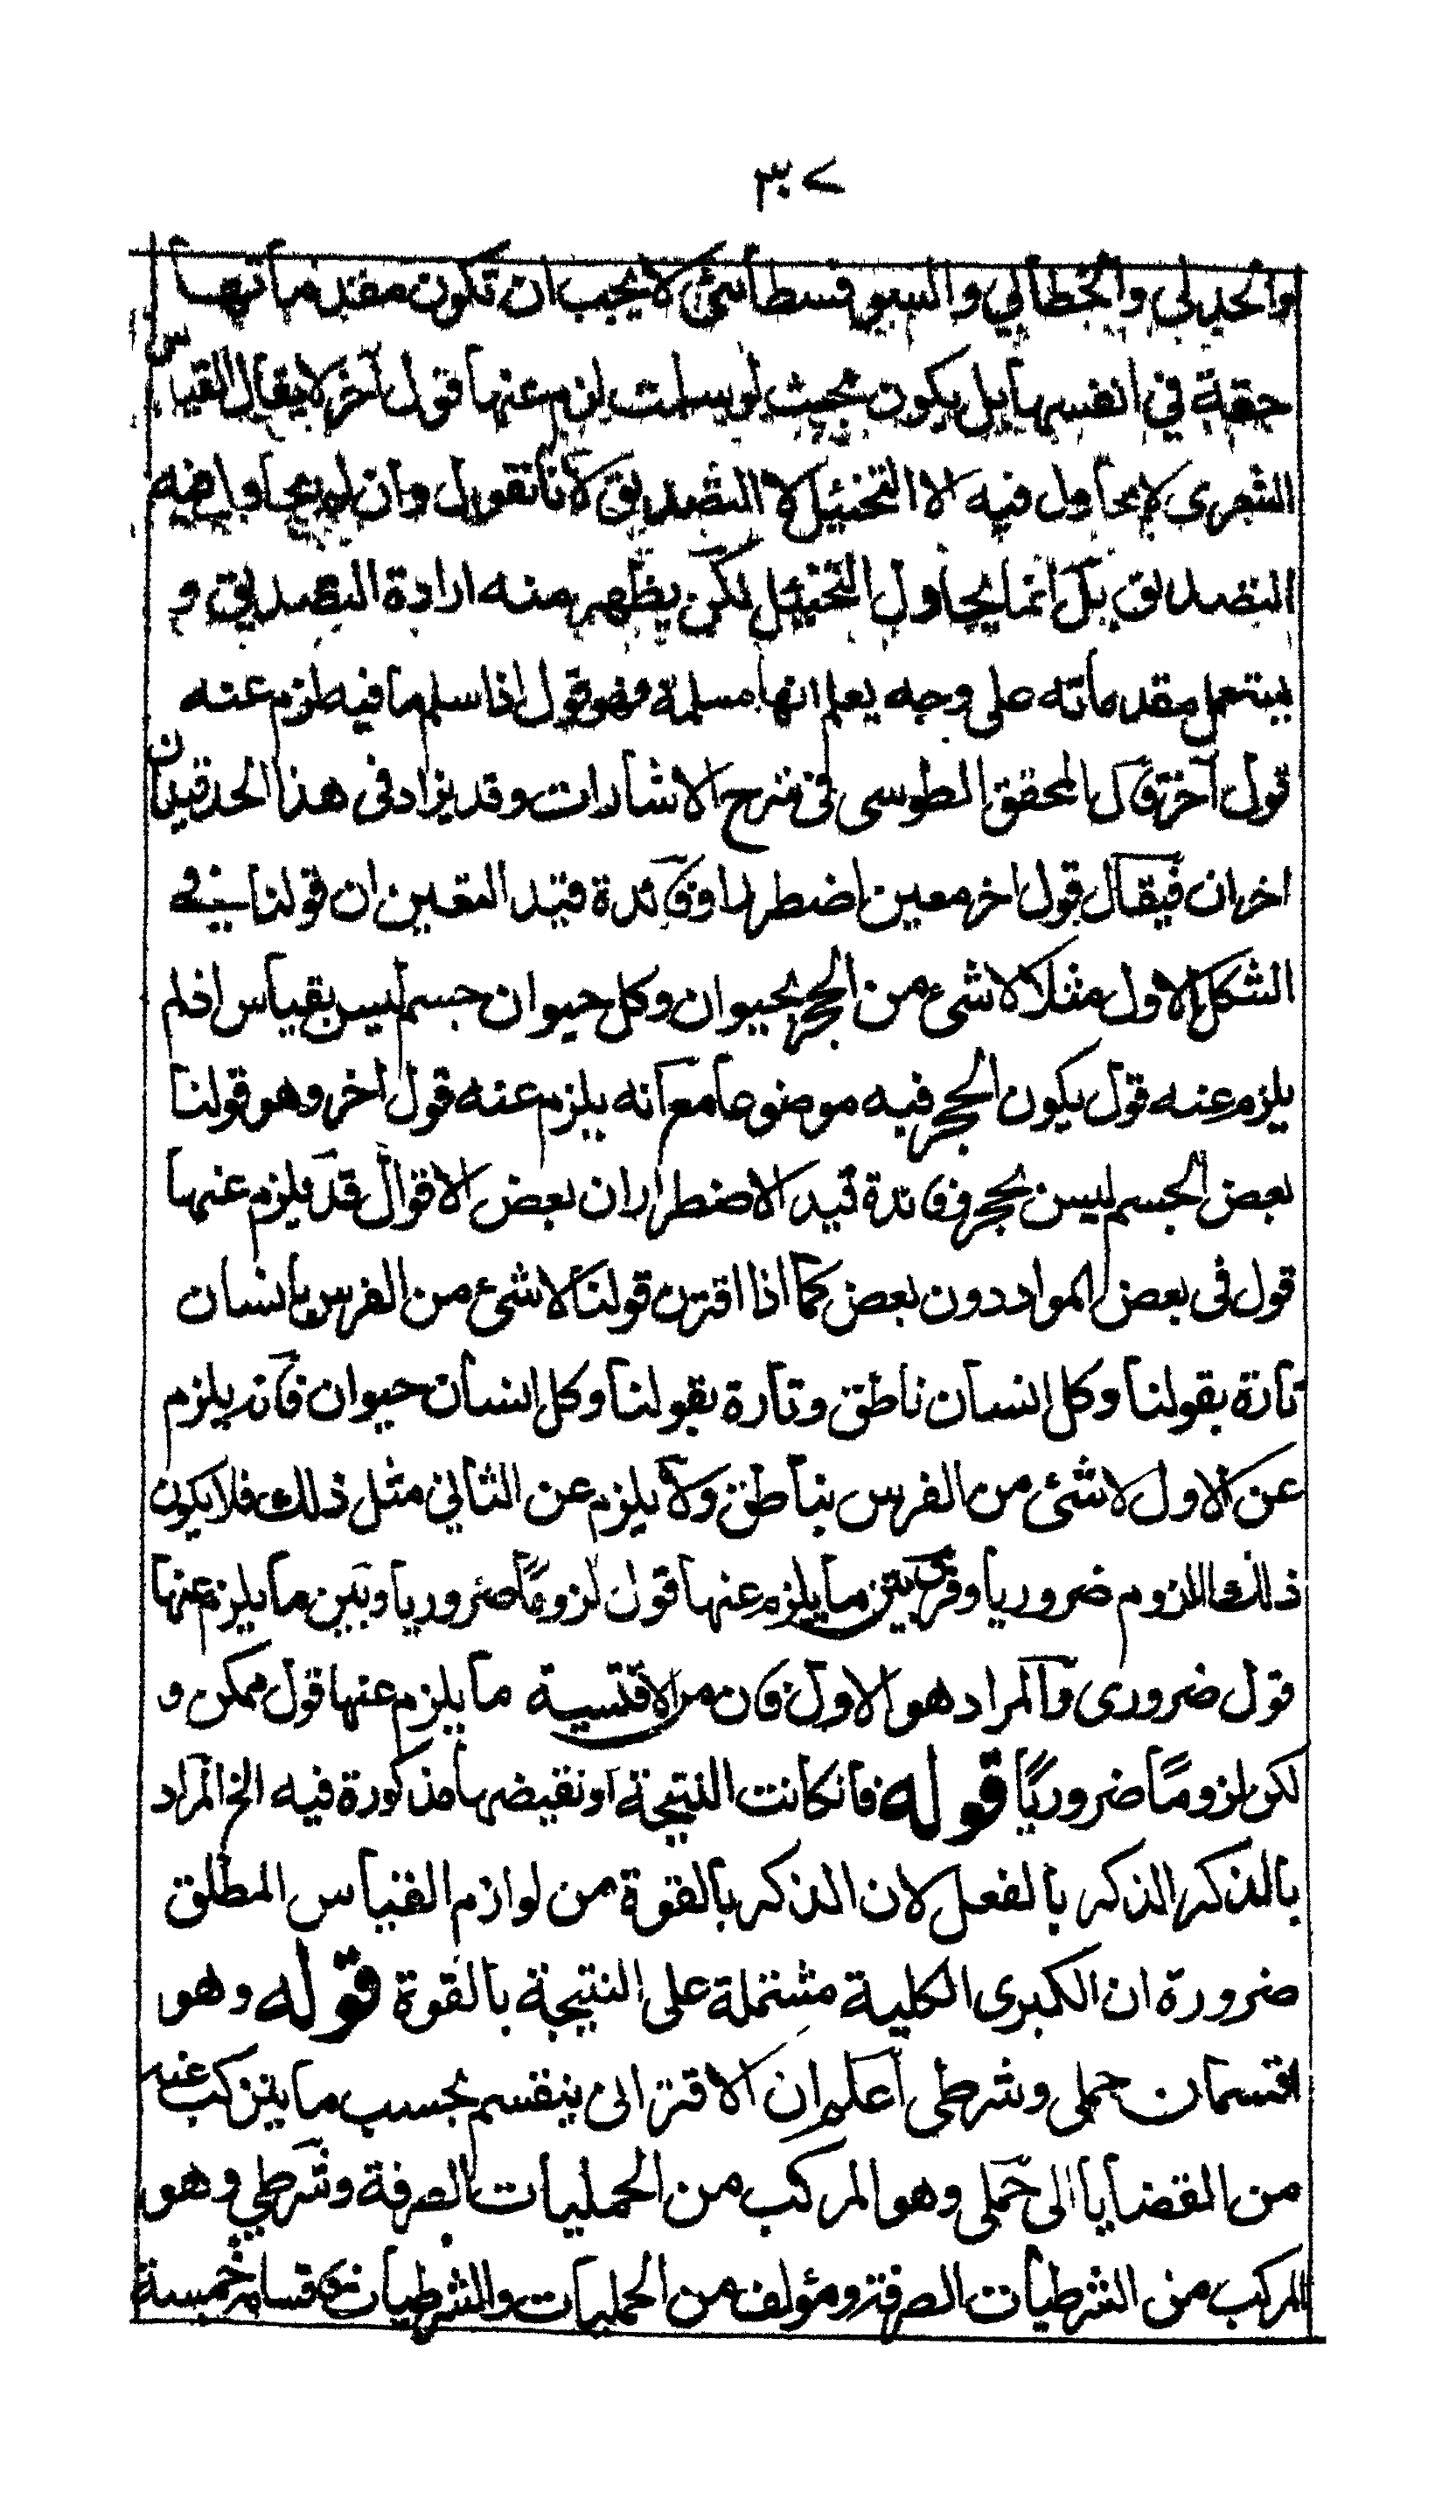 ٣٠٧
والجدلي والخطابي والسوفسطائي لا يجب ان تكون مقدماتها
حقة في انفسها بل يكون بحيث لو سلمت لزم عنها قول آخر لا يقال القياس
الشعري لا يحاول فيه الا التخئيل لا التصديق لانا نقول وان لم يحاول فيه
التصديق بل انما يحاول التخئيل لكن يظهر منه ارادة التصديق و
يستعمل مقدماته على وجه يعلم انها مسلمة فهو قول اذا سلم ما فيه لزم عنه
قول آخر قال المحقق الطوسى فى شرح الاشارات وقد يزاد فى هذا الحد قيدان
اخران فيقال قول اخر معين اضطرارا وفائدة قيد التعين ان قولنا في
الشكل الاول مثلا لا شىء من الحجر بحيوان وكل حيوان جسم ليس بقياس اذ لم
يلزم عنه قول يكون الحجر فيه موضوعا مع انه يلزم عنه قول اخر وهو قولنا
بعض الجسم ليس بحجر وفائدة قيد الاضطرار ان بعض الاقوال قد يلزم عنها
قول فى بعض المواد دون بعض كما اذا اقترن قولنا لا شىء من الفرس بانسان
تارة بقولنا وكل انسان ناطق وتارة بقولنا وكل انسان حيوان فانه يلزم
عن الاول لا شئ من الفرس بناطق ولا يلزم عن الثاني مثل ذلك فلا يكون
ذلك اللزوم ضروريا وفرق بين ما يلزم عنها قول لزومًا ضروريا وبين ما يلزم عنها
قول ضرورى والمراد هو الاول فان من الاقيسة ما يلزم عنها قول ممكن و
لكن لزومًا ضروريًا قوله فان كانت النتيجة او نقيضها مذكورة فيه الخ المراد
بالذكر الذكر بالفعل لان الذكر بالقوة من لوازم القياس المطلق
ضرورة ان الكبرى الكلية مشتملة على النتيجة بالقوة قوله وهو
قسمان حملى وشرطى اعلم ان الاقترانى ينقسم بحسب ما يتركب عنه
من القضايا الى حملى وهو المركب من الحمليات الصرفة وشرطي وهو
المركب من الشرطيات الصرفة ومؤلف من الحمليات والشرطيات خمسة